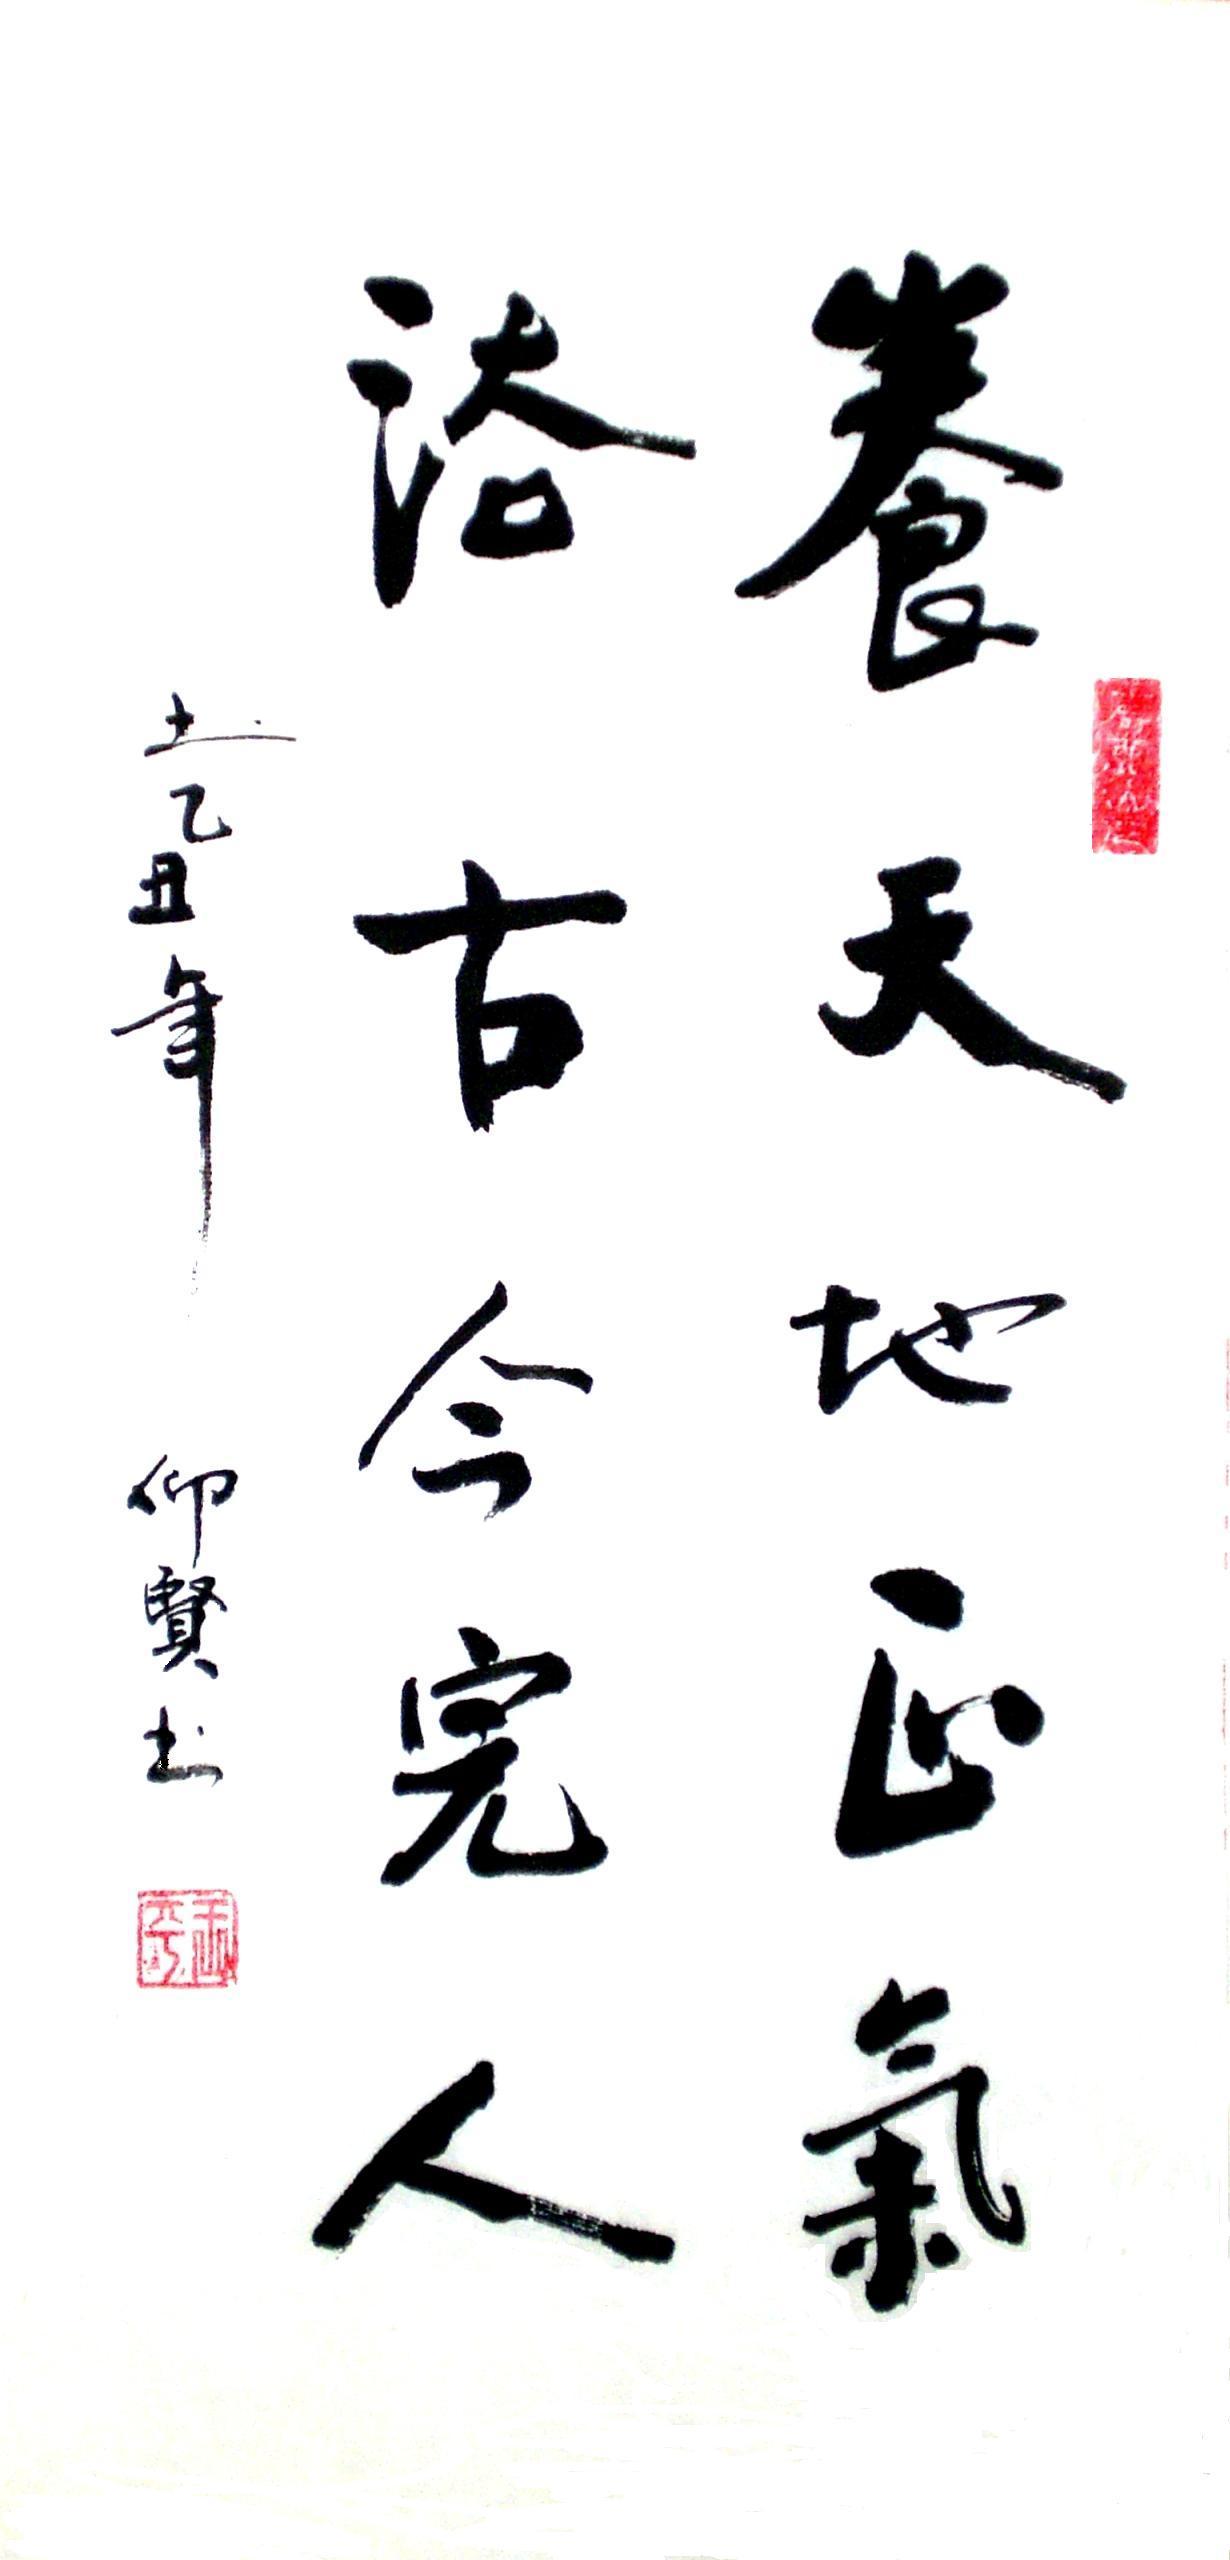 養天地正氣
法古今完人
乙丑年 仰賢书